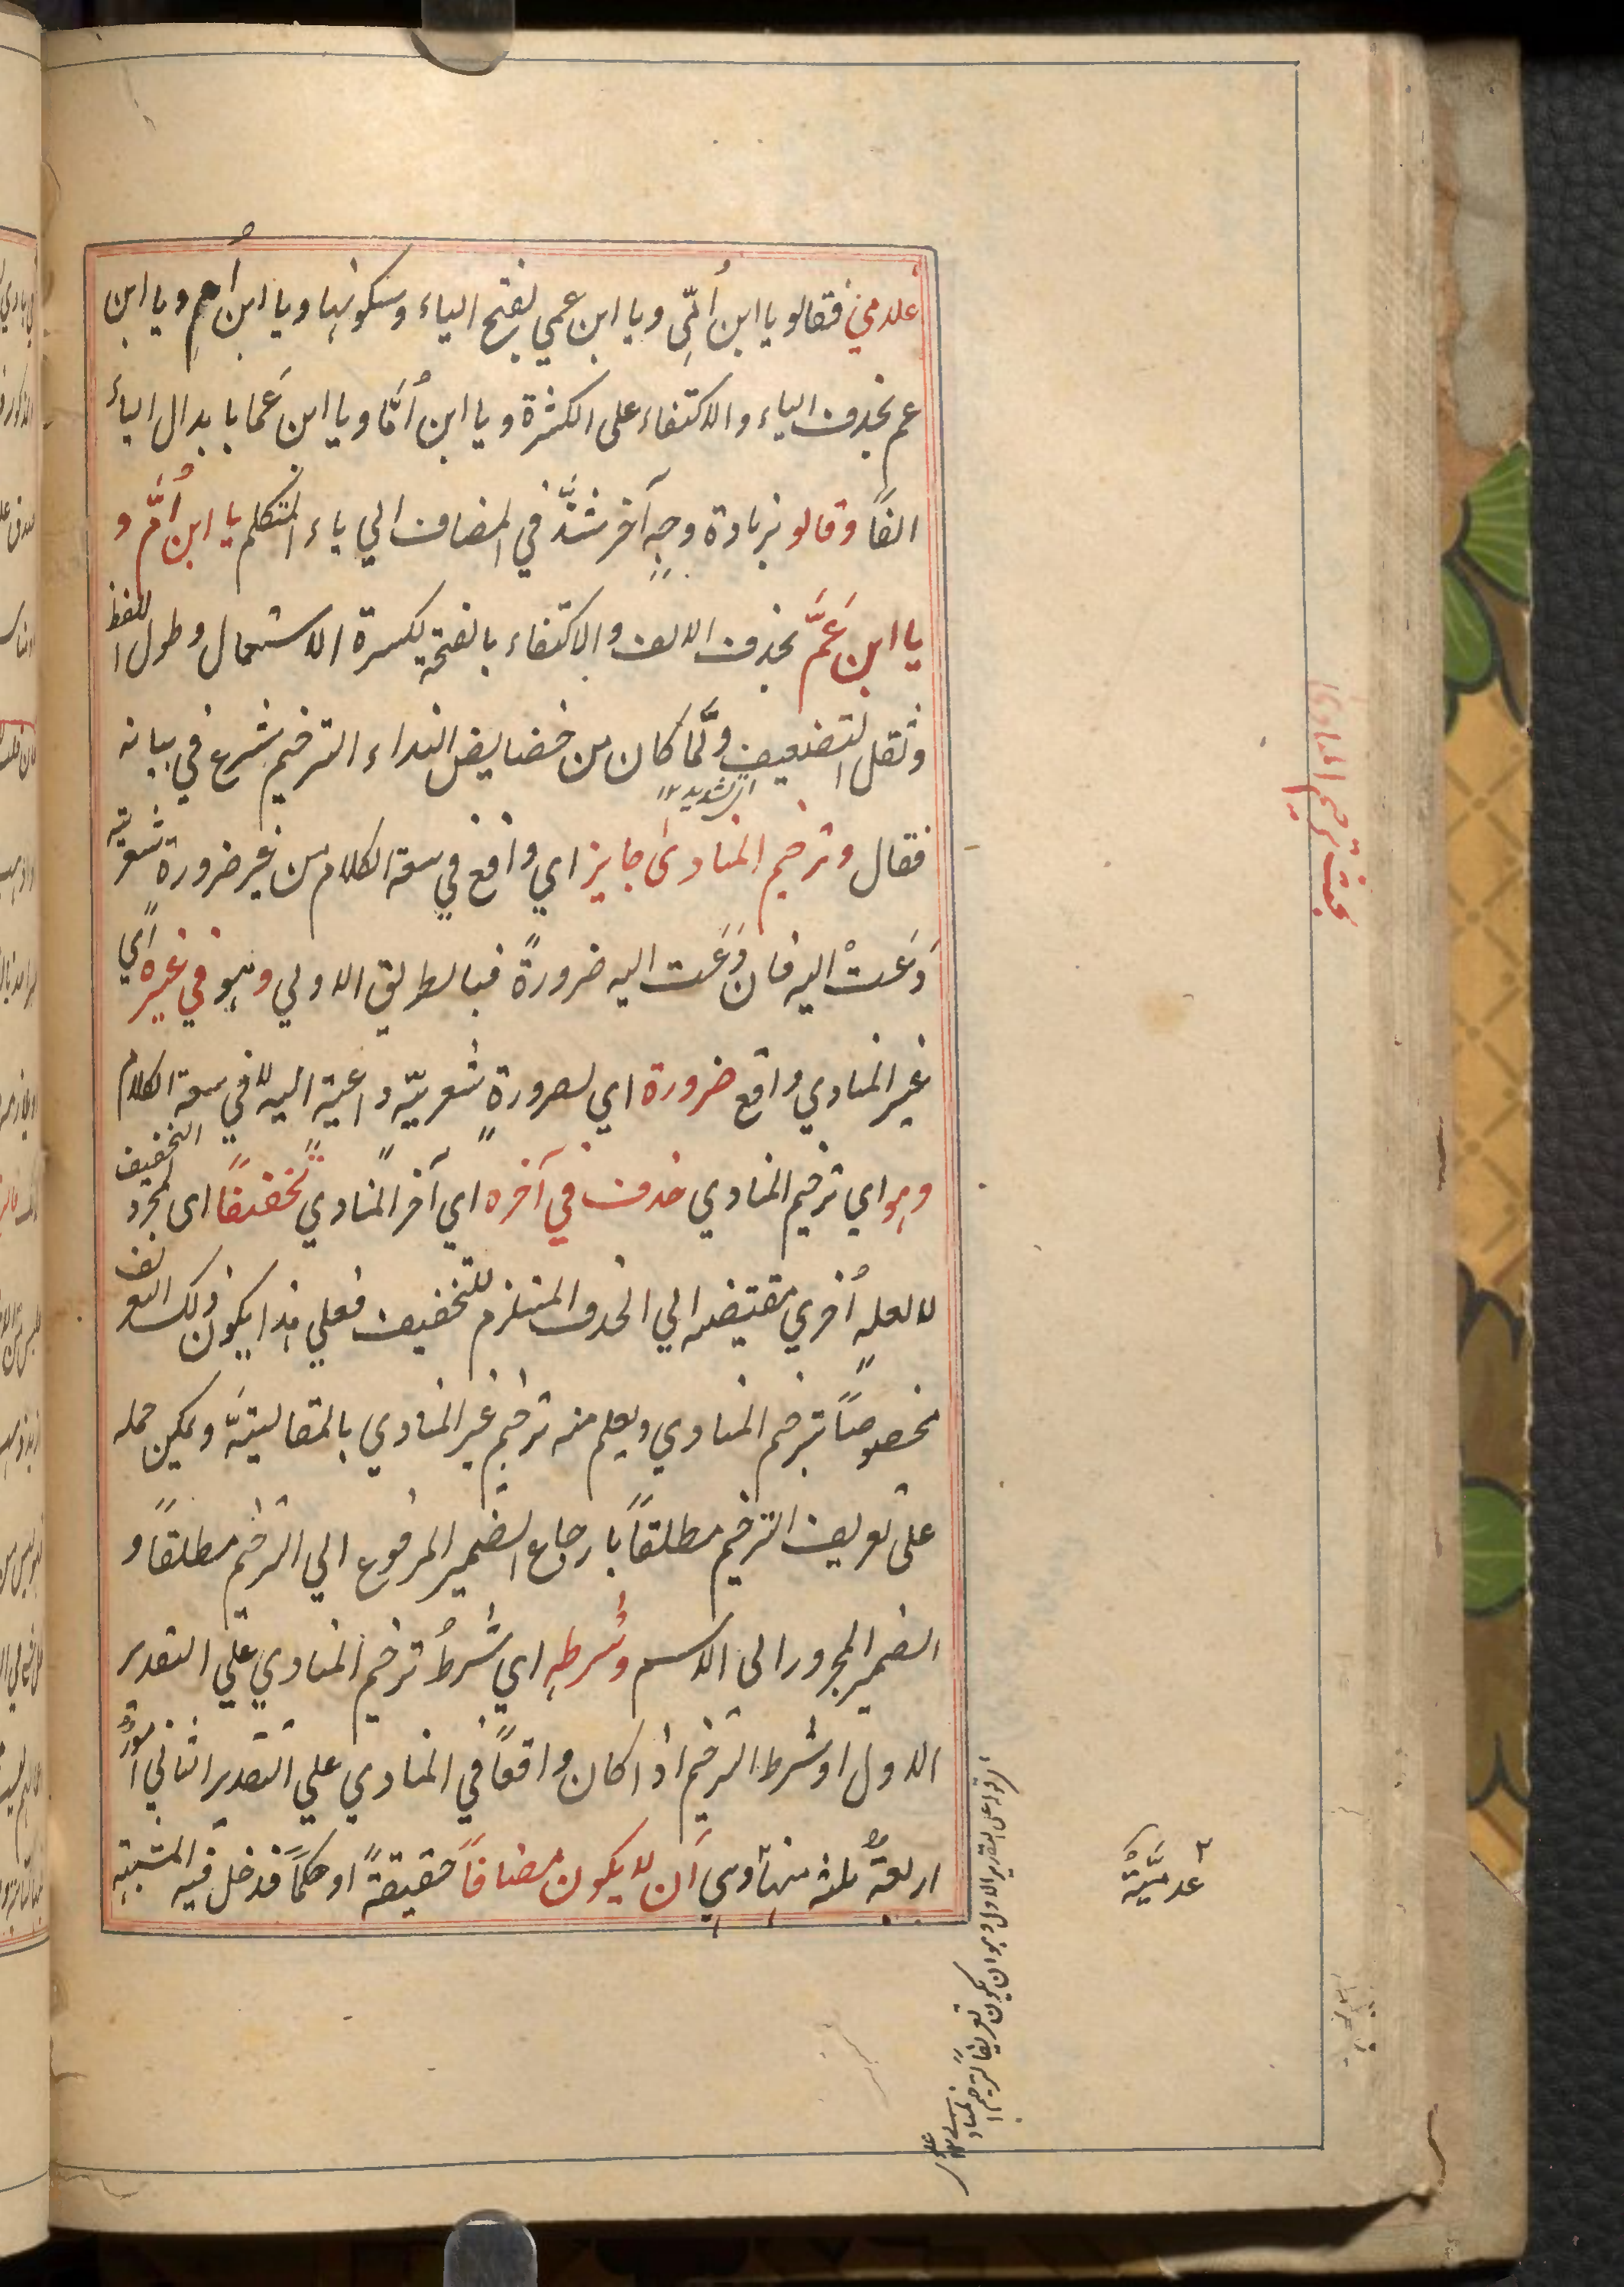 غلامي فقالو يا ابن اُمّي ويا ابن عمي بفتح الياء وسكونها ويا ابن اُمِ ويا ابن
عم بحذف الياء والاكتفاء على الكثرة ويا ابن اُمَّا ويا ابن عَما بابدال الياء
الفاً وقالو بزيادة وجهٍ آخر شذَّ في المضاف الي ياء المتكلم يا ابن اُمَّ و
يا ابن عَمَّ بحذف الالف والاكتفاء بالفتحة لكسرة الاستعمال وطول اللفظ
وثقل التضعيف ولمَّا كان من خصايص النداء الترخيم شرع في بيانه
اي تشديد ١٢
فقال وترخيم المنادى جايز اي واقع في سعة الكلام من غير ضرورة شعريّة
دَعَتْ اليه فان دَعَت اليه ضرورةً فبالطريق الاولي وهو في غيره اي
غير المنادي واقع ضرورة اي لضرورةٍ شعريّه داعية اليه لا في سعة الكلام
وهو اي ترخيم المنادي حذف في آخره اي آخر المنادي تخفيفًا اى لمجرد التخفيف
لا لعلهٍ اُخري مقتضيه الي الحذف المستلزم للتخفيف فعلي هذا يكون ذلك التعريف
مخصوصًا بترخيم المنادي ويعلم منه ترخيم غير المنادي بالمقاليتهَّ ويمكن حمله
على تعريف الترخيم مطلقاً بارجاع الضمير المرفوع الي الترخيم مطلقًا و
الضمير المجرور الى الاسم وشرطهِ اي شرطُ ترخيم المنادي علي التقدير
الاول او شرط الترخيم اذا كان واقعًا في المنادي علي التقدير الثاني امورٌ
اربعةٌ ثلثه منها وهي اَن لا يكون مضافاً حقيقةً او حكماً فدخل فيه المشبه
بحث ترخيم المنادى
عدميَّةٌ
قوله على التقدير الاول وهو ان يكون تعريفًا لترخيم المنادي ١٢